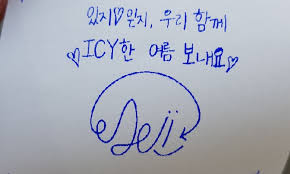 있지♡믿지, 우리 함께
♡ICY한 여름 보내요♡